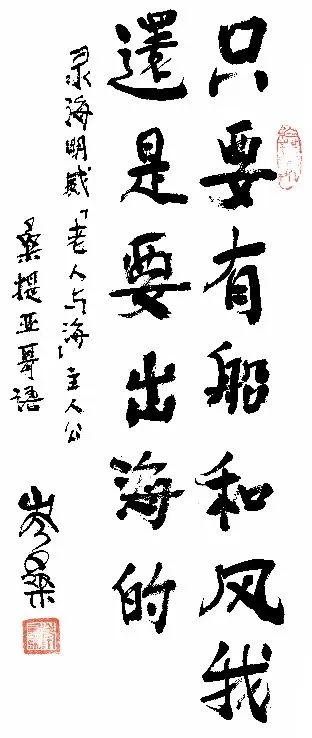 只要有船和风我
還是要出海的
录海明威「老人与海」主人公
桑提亚哥语
岑桑